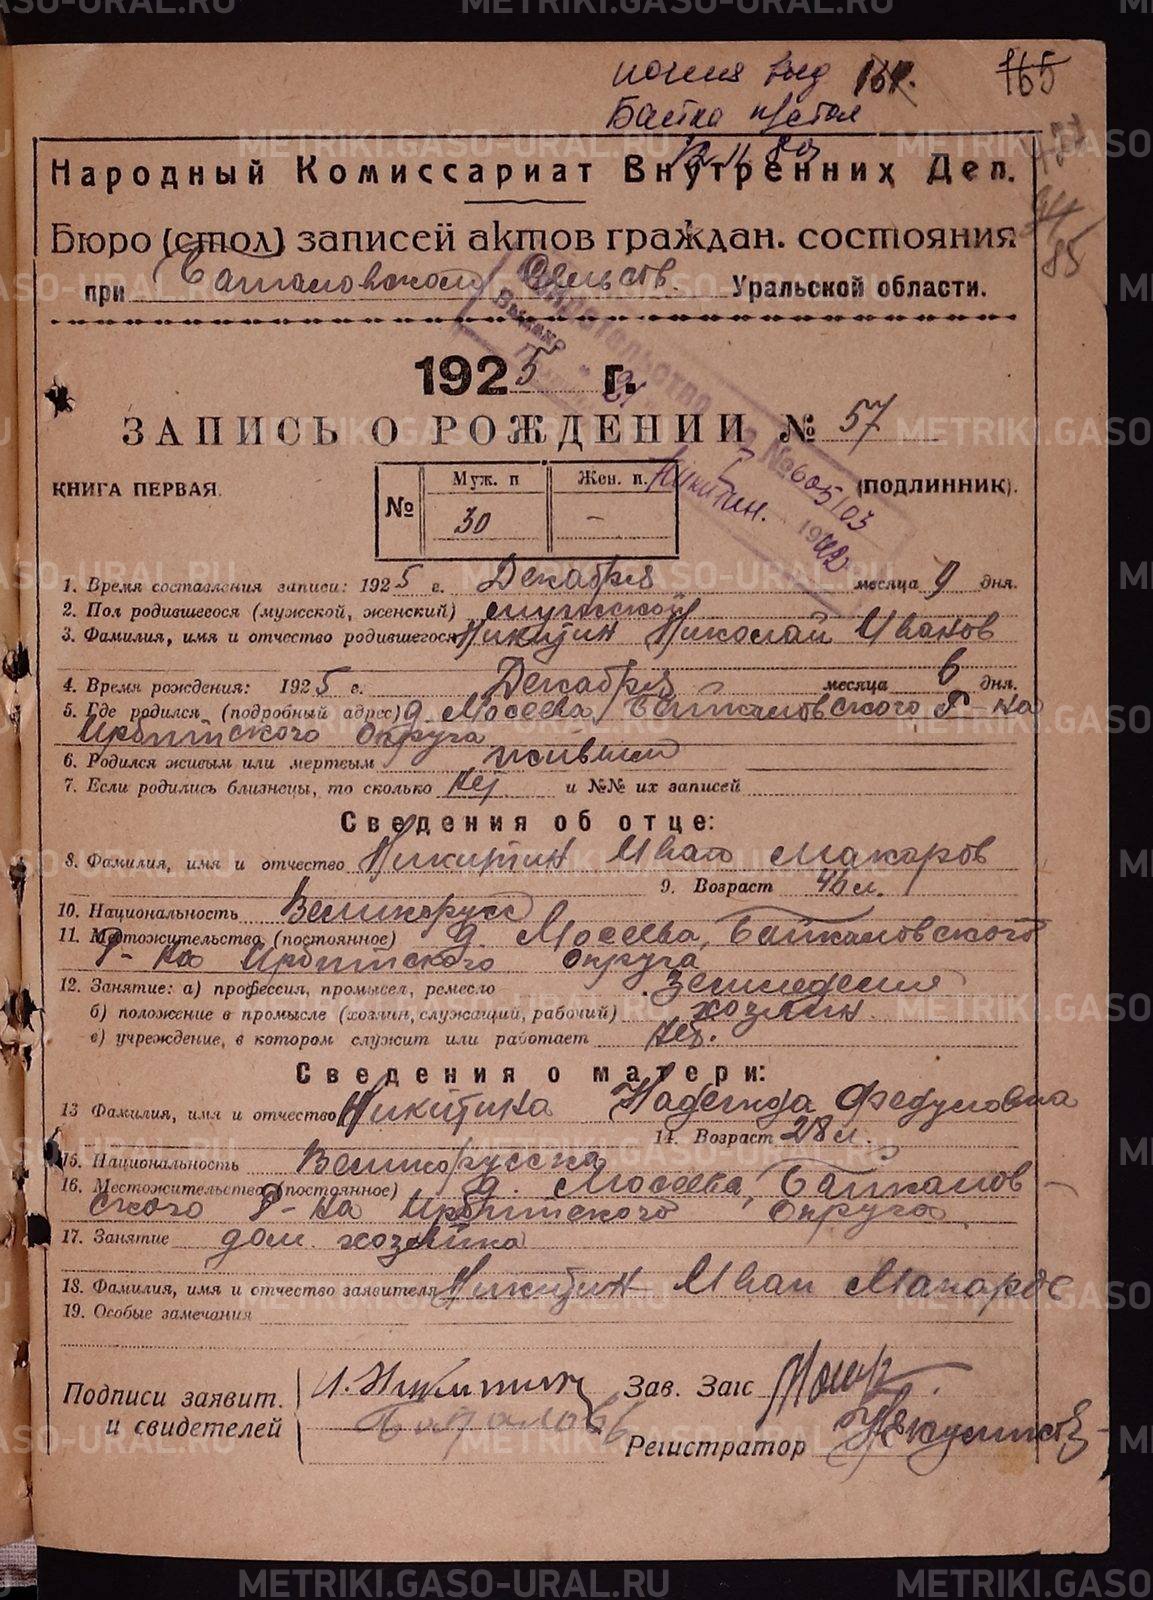 копия выд 164. 165
Народный Комиссариат Внутренних Дел.
Бюро (стол) записей актов граждан. состояния
при сельсов. Уральской области.
1925 г.
ЗАПИСЬ О РОЖДЕНИИ № 57
КНИГА ПЕРВАЯ. (ПОДЛИННИК).
№ Муж. п Жен. п.
30 —
Свидетельство № 605103
Выдано
Никитин. 1942
1. Время составления записи: 1925 г. Декабря месяца 9 дня.
2. Пол родившегося (мужской, женский) мужской
3. Фамилия, имя и отчество родившегося Никитин Николай Иванов
4. Время рождения: 1925 г. Декабря месяца 6 дня.
5. Где родился (подробный адрес) д. Мосеева, Байкаловского Р-на
Ирбитского Округа
6. Родился живым или мертвым живым
7. Если родились близнецы, то сколько нет. и №№ их записей
Сведения об отце:
8. Фамилия, имя и отчество Никитин Иван Макаров
9. Возраст 46 л.
10. Национальность Великорусс
11. Местожительство (постоянное) д. Мосеева, Байкаловского
Р-на Ирбитского Округа
12. Занятие: а) профессия, промысел, ремесло земледелия
б) положение в промысле (хозяин, служащий, рабочий) хозяин.
в) учреждение, в котором служит или работает нет.
Сведения о матери:
13 Фамилия, имя и отчество Никитина Надежда Федуловна
14. Возраст 28 л.
15. Национальность Великорусска
16. Местожительство (постоянное) д. Мосеева, Байкалов-
ского Р-на Ирбитского Округа
17. Занятие дом. хозяйка
18. Фамилия, имя и отчество заявителя Никитин Иван Макаров
19. Особые замечания
Подписи заявит. И. Никитин Зав. Загс
и свидетелей
Регистратор
METRIKI.GASO-URAL.RU